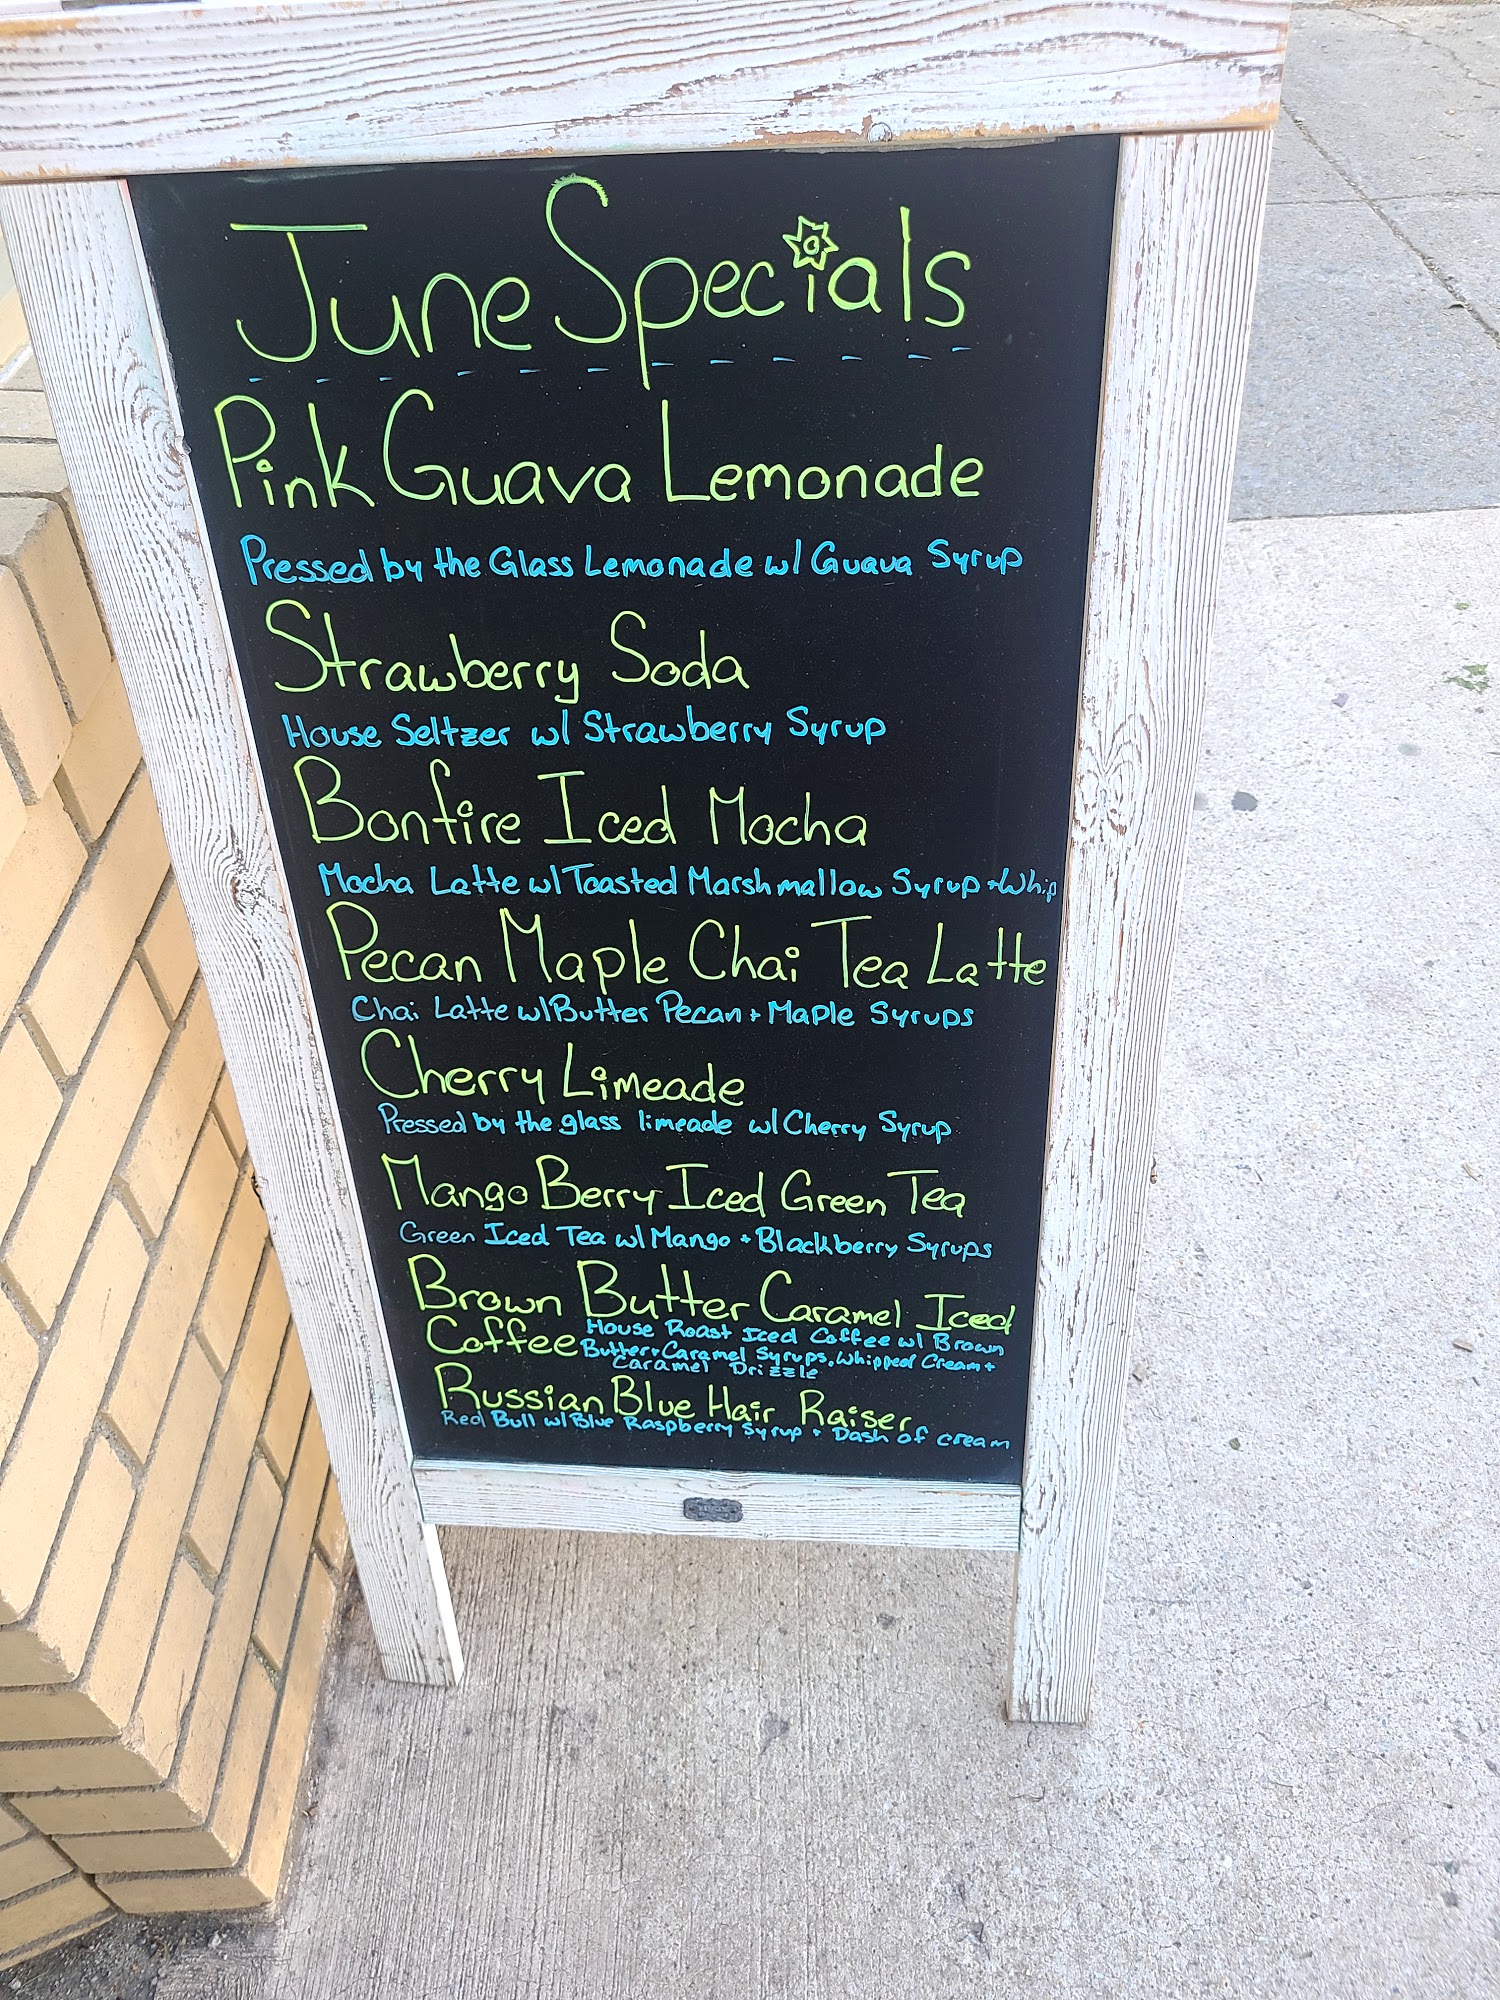 June Specials
Pink Guava Lemonade
Pressed by the Glass Lemonade w/ Guava Syrup
Strawberry Soda
House Seltzer w/ Strawberry Syrup
Bonfire Iced Mocha
Mocha Latte w/ Toasted Marshmallow Syrup + Whip
Pecan Maple Chai Tea Latte
Chai Latte w/ Butter Pecan + Maple Syrups
Cherry Limeade
Pressed by the glass limeade w/ Cherry Syrup
Mango Berry Iced Green Tea
Green Iced Tea w/ Mango + Blackberry Syrups
Brown Butter Caramel Iced
Coffee
House Roast Iced Coffee w/ Brown
Butter + Caramel Syrups, Whipped Cream +
Caramel Drizzle
Russian Blue Hair Raiser
Red Bull w/ Blue Raspberry Syrup + Dash of cream